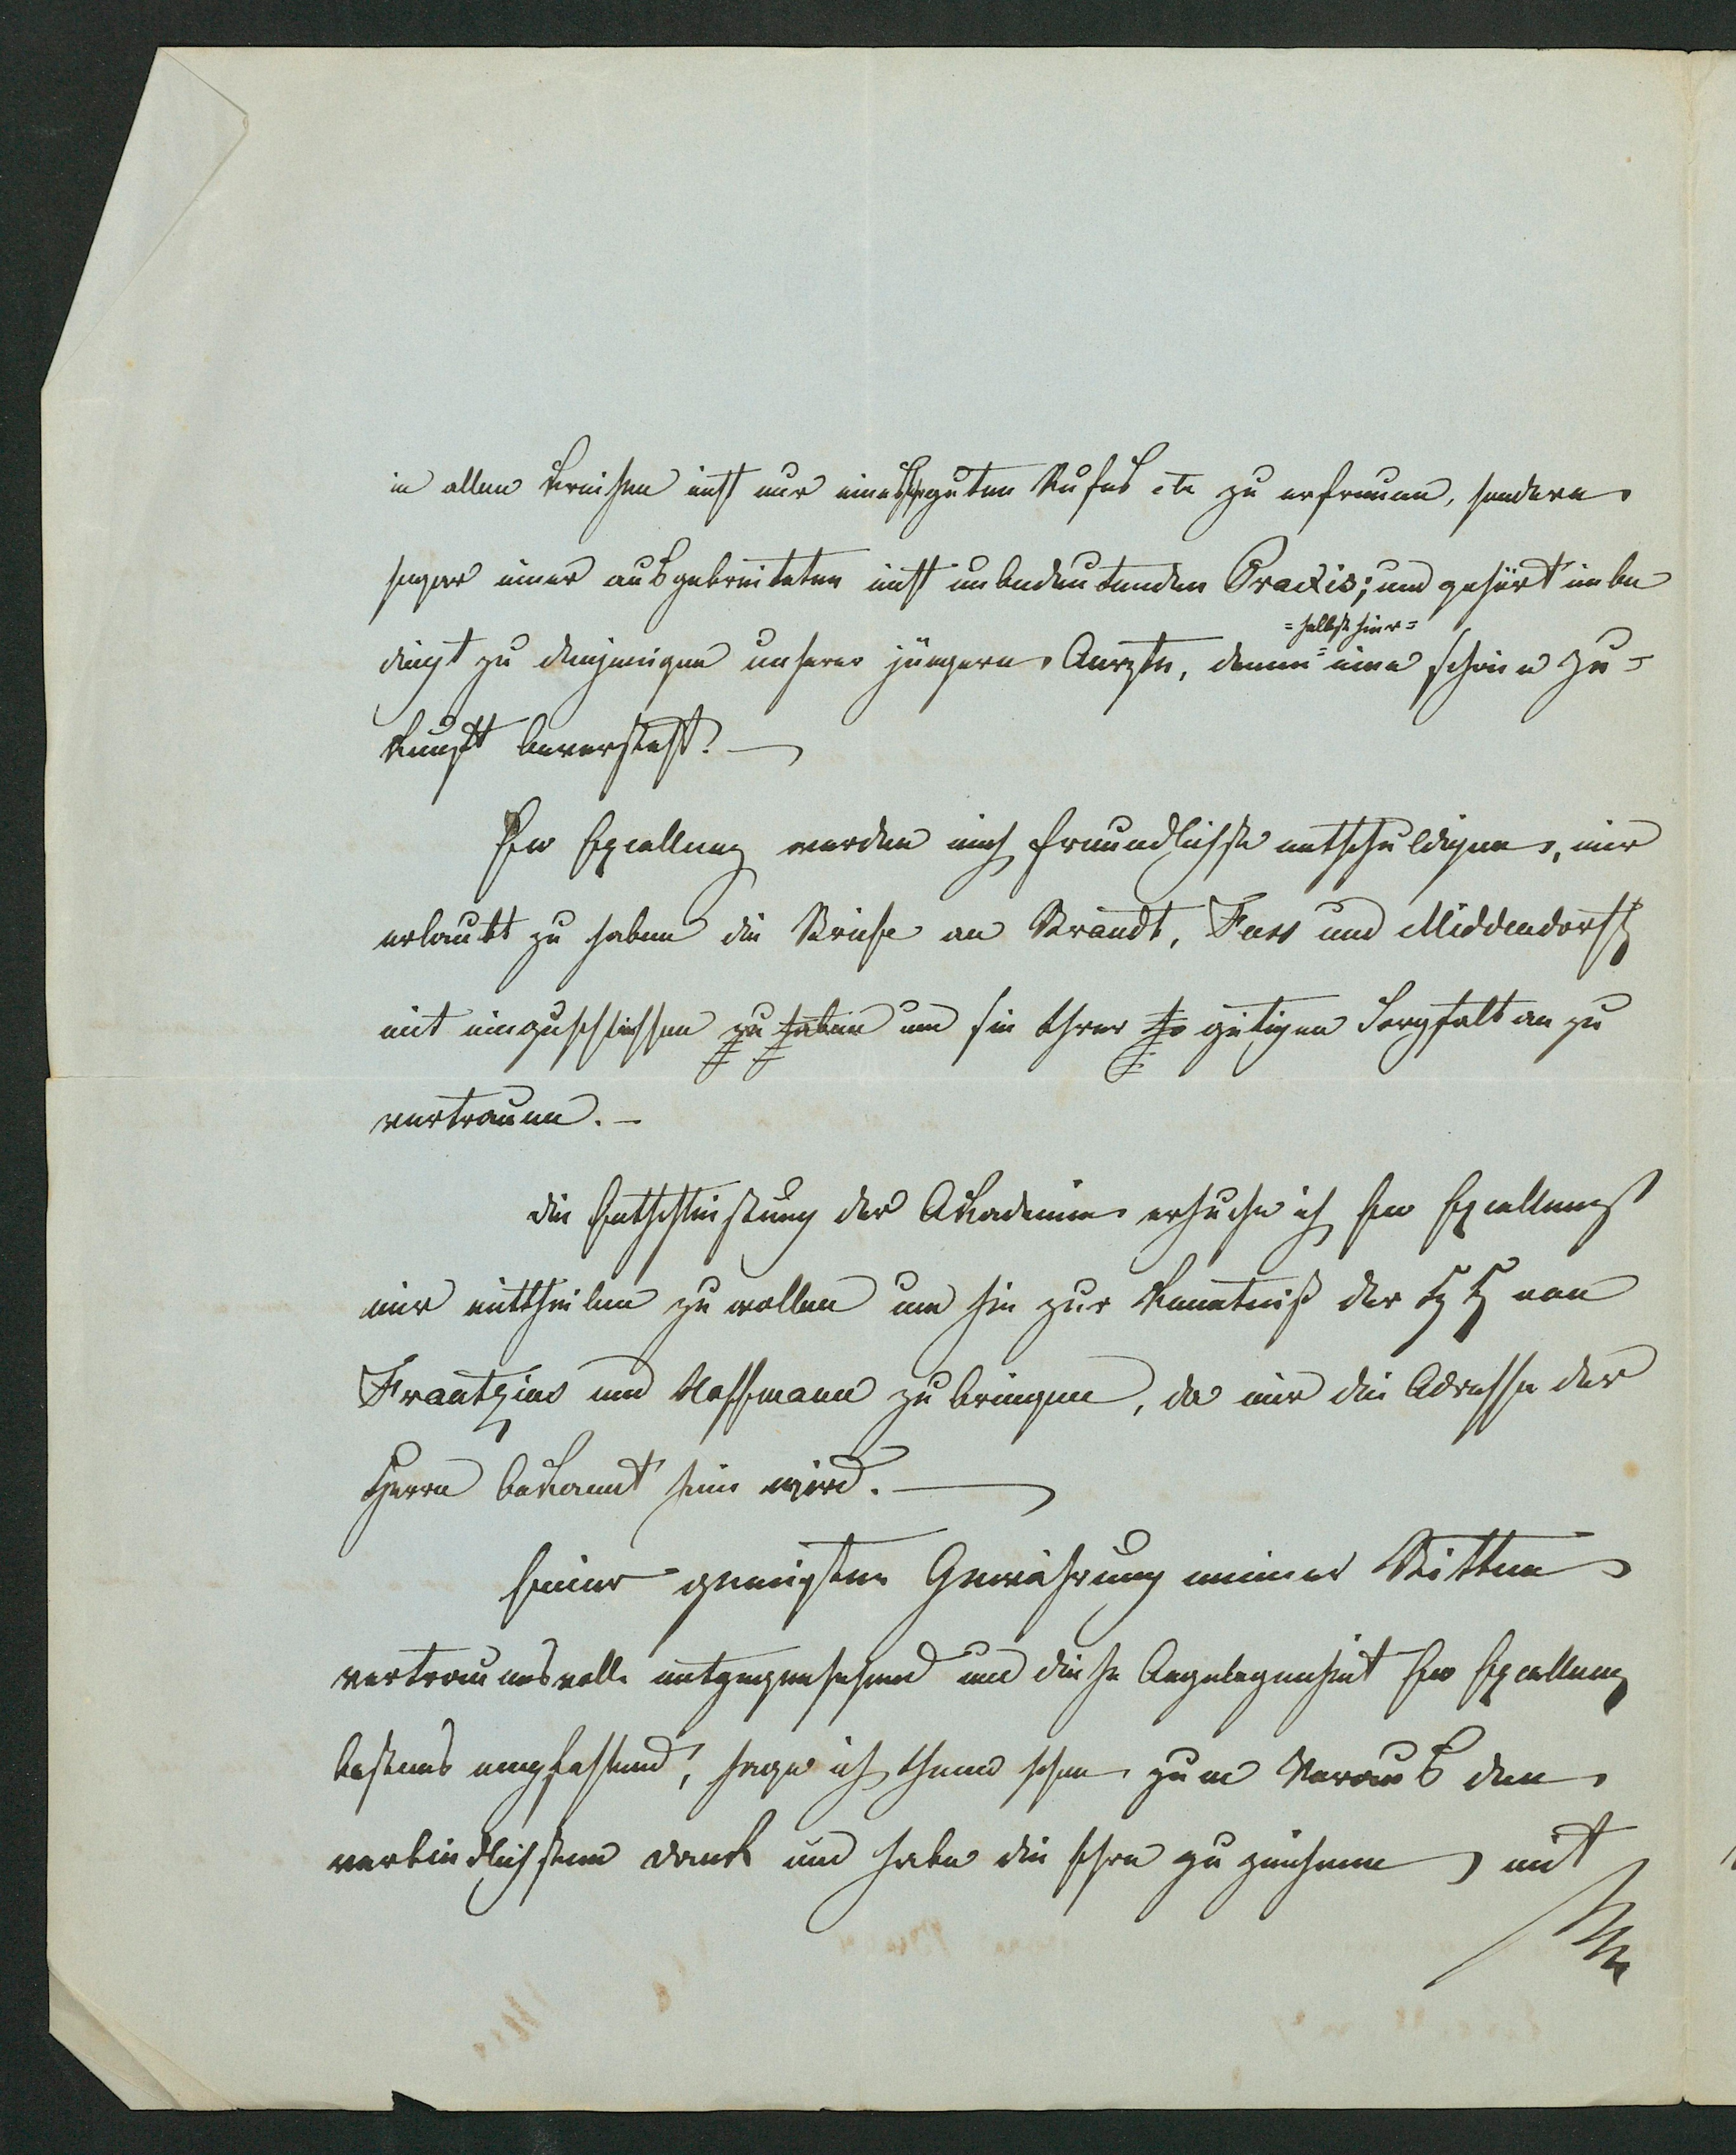 in allen Kreisen nicht nur eines guten Rufes etc zu erfreuen, sondern
sogar einer ausgebreiteten nicht unbedeutenden Praxis; und gehört unbe
=selbst hier=
dingt zu denjenigen unserer jüngern Aerzte, denen eine schöne Zu=
kunft bevorsteht. —
Ew Excellenz werden mich freundlichst entschuldigen, mir
erlaubt zu haben die Briefe an Brandt, Fuss und Middendorff
mit einzuschliessen zu haben um sie Ihrer gütigen Sorgfalt an zu
vertrauen. —
Die Entschließung der Akademie ersuche ich Ew Excellenz
mir mittheilen zu wollen um sie zur Kenntniß der HH von
Frantzius und Hoffmann zu bringen, da mir die Adresse der
Herrn bekannt sein wird. —
Einer geneigten Gewährung meiner Bitten
vertrauensvoll entgegensehend und diese Angelegenheit Ew Excellenz
bestens empfehlend, sage ich Ihnen schon zum Voraus den
verbindlichsten Dank und habe die Ehre zu zeichnen mit